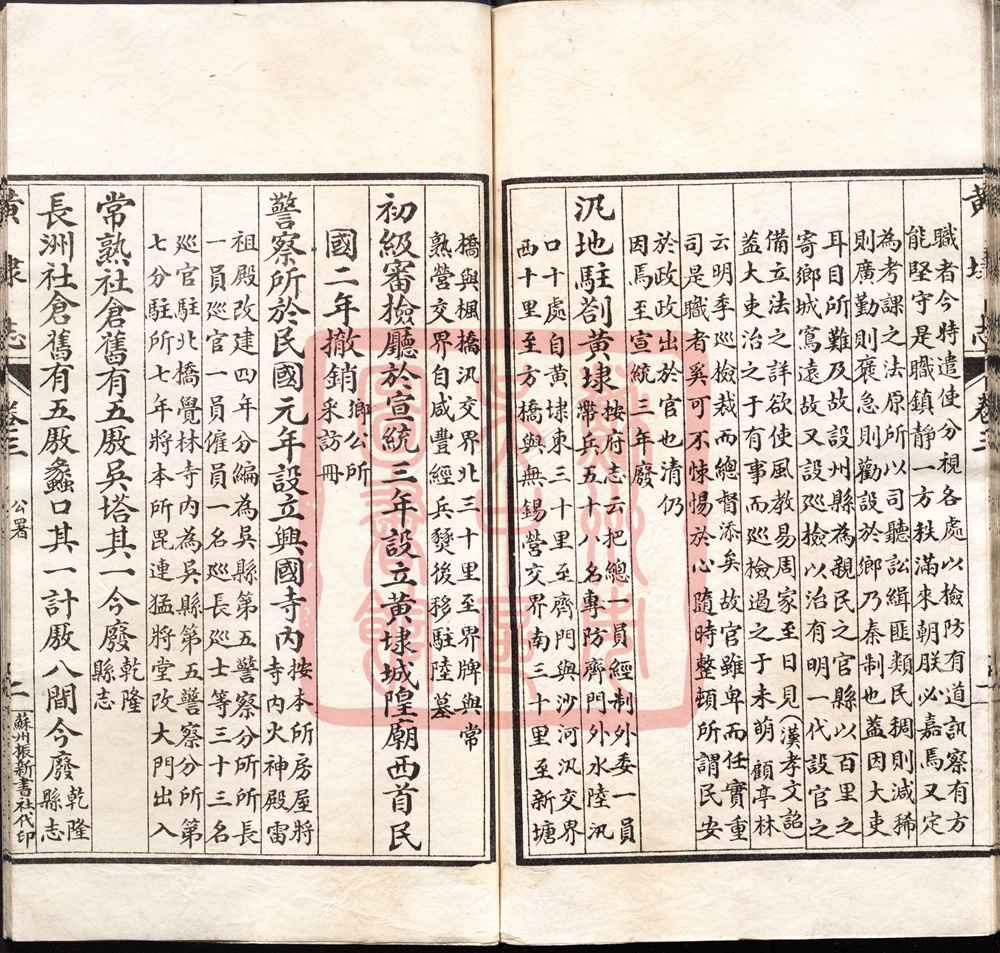 黃埭志
卷三
職者今時遣使分視各處以檢防有道訊察有方
能堅守是職鎮靜一方秩滿來朝朕必嘉焉又定
為考課之法原所以司聽訟緝匪類民稠則減稀
則廣勤則褒急則勸設於鄉乃秦制也蓋因大吏
耳目所難及故設州縣為親民之官縣以百里之
寄鄉城寫遠故又設廵檢以治有明一代設官之
備立法之詳欲使風教易周家至日見(漢孝文詔
蓋大吏治之于有事而廵檢遏之于未萌 顧亭林
云明季廵檢裁而總督添矣故官雖卑而任實重
司是職者奚可不悚惕於心隨時整頓所謂民安
於政政出於官也清仍
因焉至宣統三年廢
汛地駐劄黃埭按府志云把總一員經制外委一員
幣兵五十八名專防齊門外水陸汛
口十處自黃埭東三十里至齊門與沙河汛交界
西十里至方橋與無錫營交界南三十里至新塘
橋與楓橋汛交界北三十里至界牌與常
熟營交界自咸豐經兵燹後移駐陸墓
初級審檢廳於宣統三年設立黃埭城隍廟西首民
國二年撤銷鄉公所
采訪冊
警察所於民國元年設立興國寺內按本所房屋將
寺內火神殿雷
祖殿改建四年分編為吳縣第五警察分所所長
一員廵官一員僱員一名廵長廵士等三十三名
廵官駐北橋覺林寺內為吳縣第五警察分所第
七分駐所七年將本所毘連猛將堂改大門出入
常熟社倉舊有五廒吳塔其一今廢乾隆
縣志
長洲社倉舊有五廒蠡口其一計廒八間今廢乾隆
縣志
黃埭志
卷三
公署
二
蘇州振新書社代印